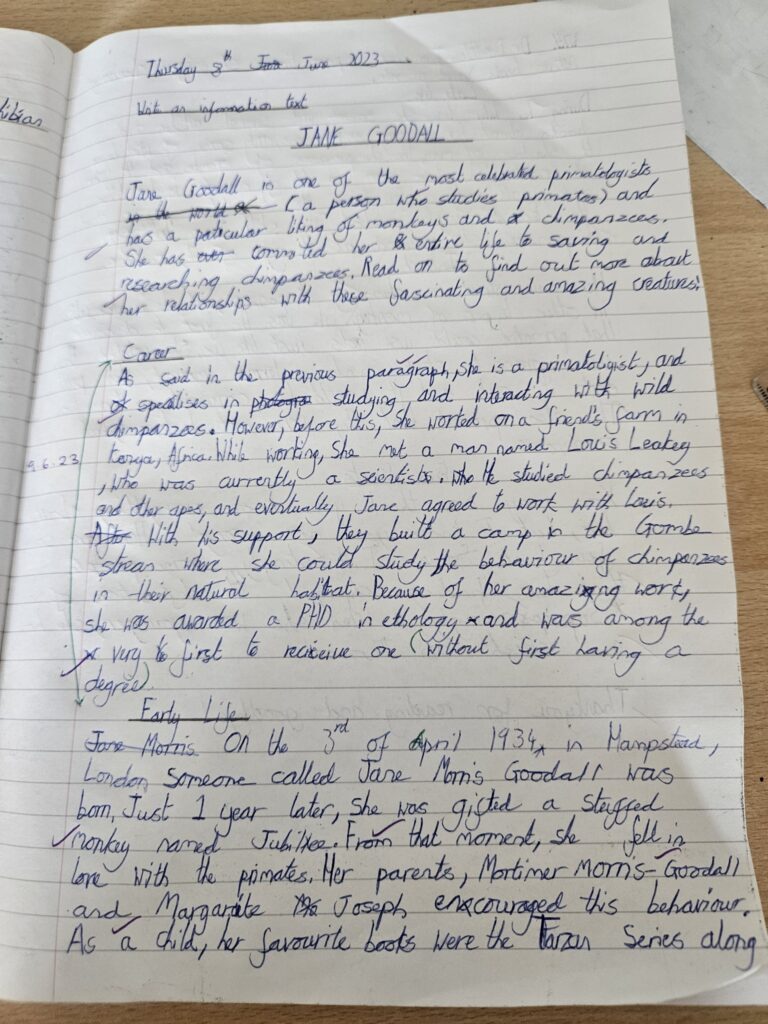 libian
Thursday 8th June 2023
Write an information text
JANE GOODALL
Jane Goodall is one of the most celebrated primatologists
in the world (a person who studies primates) and
has a paticular liking of monkeys and chimpanzees.
She has commited her entire life to saving and
researching chimpanzees. Read on to find out more about
her relationships with these fascinating and amazing creatures:
Career
As said in the previous paragraph, she is a primatologist, and
specalises in studying and interacting with wild
chimpanzees. However, before this, She worked on a friend's farm in
Kenya, Africa. While working, She met a man named Louis Leakey
9.6.23
, who was currently a scientist. He studied chimpanzees
and other apes, and eventually Jane agreed to work with Louis.
After With his support, they built a camp in the Gombe
stream where she could study the behaviour of chimpanzees
in their natural habitat. Because of her amazing work,
she was awarded a PHD in ethology and was among the
very first to recieive one (without first having a
degree).
Early Life
Jane Morris On the 3rd of April 1934 in Hampstead,
London someone called Jane Morris Goodall was
born. Just 1 year later, She was gifted a stuffed
monkey named Jubilee. From that moment, she fell in
love with the primates. Her parents, Mortimer Morris-Goodall
and Margarite Joseph encouraged this behaviour.
As a child, her favourite books were the Tarzan Series along